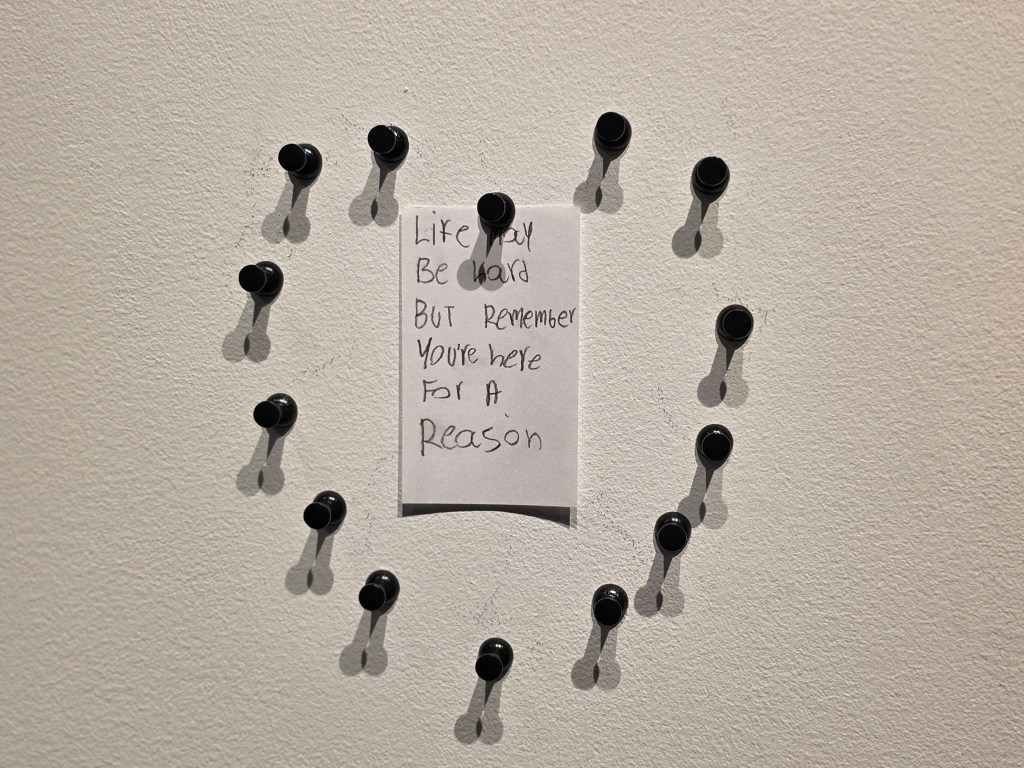 Life May
Be Hard
BUT Remember
You're here
For A
Reason